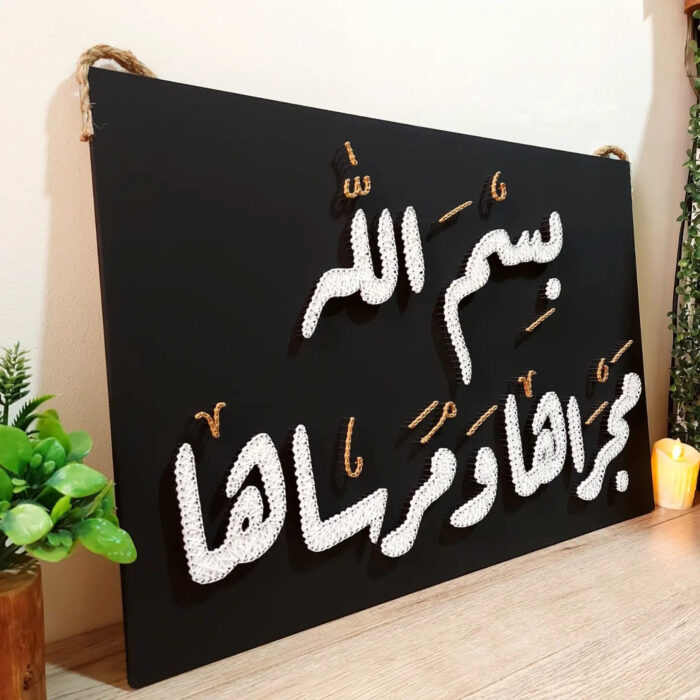 بِسْمِ اللَّه
مَجْرَاهَا وَمُرْسَاهَا